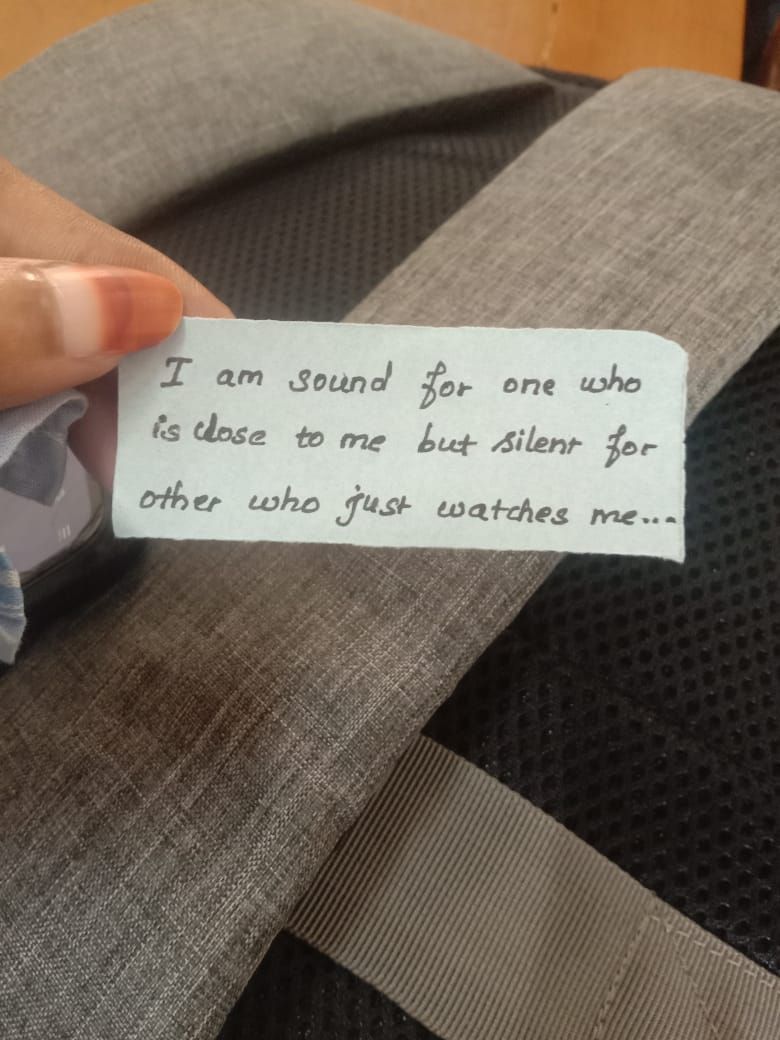 I am sound for one who
is close to me but silent for
other who just watches me...